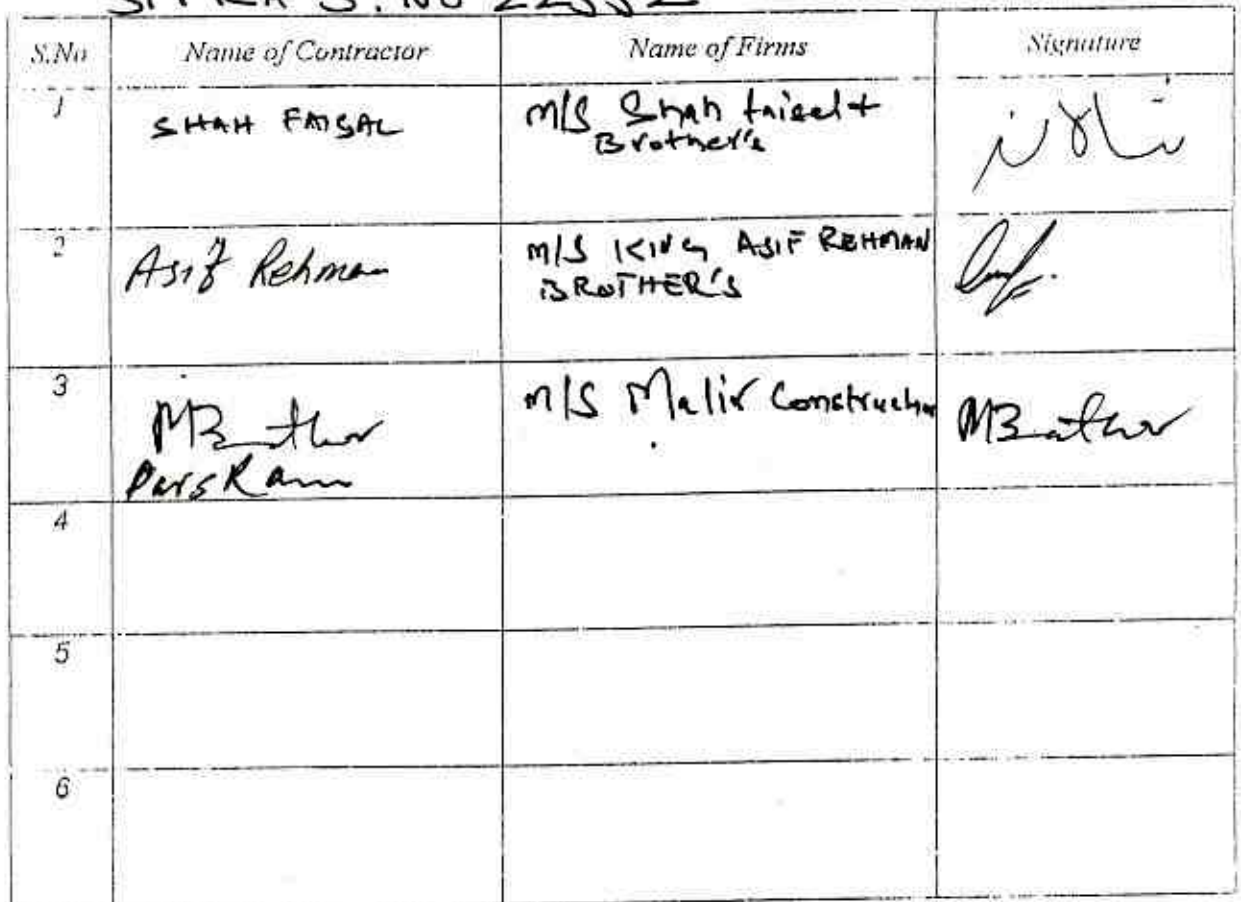 S.No Name of Contractor Name of Firms Signature
1 SHAH FAISAL M/S Shah faisal +
Brother's
2 Asif Rehman M/S KING ASIF REHMAN
BROTHER'S
3 M/S Malir Construction
Pars Ram
4
5
6